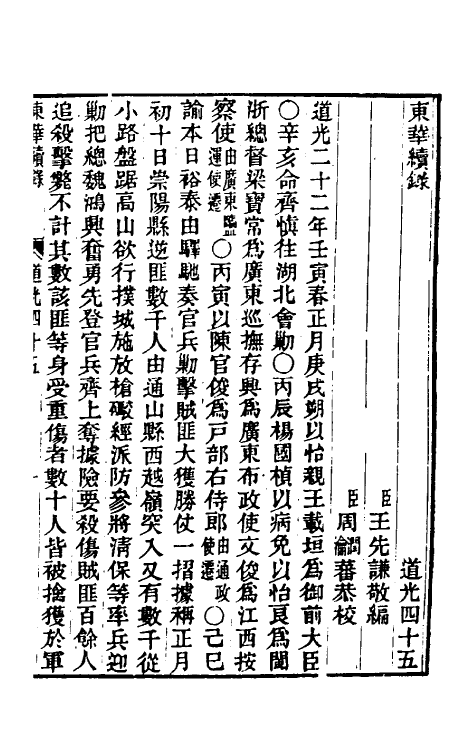 東華續錄
道光四十五
臣王先謙敬編
臣周潤蕃瀹蕃恭校
道光二十二年壬寅春正月庚戌朔以怡親王載垣爲御前大臣
〇辛亥命齊愼往湖北會勦〇丙辰楊國楨以病免以怡良爲閩
浙總督梁寶常爲廣東巡撫存興爲廣東布政使文俊爲江西按
察使由廣東鹽運使遷〇丙寅以陳官俊爲戶部右侍郎由通政使遷〇己巳
諭本日裕泰由驛馳奏官兵勦擊賊匪大獲勝仗一摺據稱正月
初十日崇陽縣逆匪數千人由通山縣西越嶺突入又有數千從
小路盤踞高山欲行撲城施放槍礮經派防參將淸保等率兵迎
勦把總魏鴻興奮勇先登官兵齊上奪據險要殺傷賊匪百餘人
追殺擊斃不計其數該匪等身受重傷者數十人皆被搶獲於軍
東華續錄
道光四十五
一